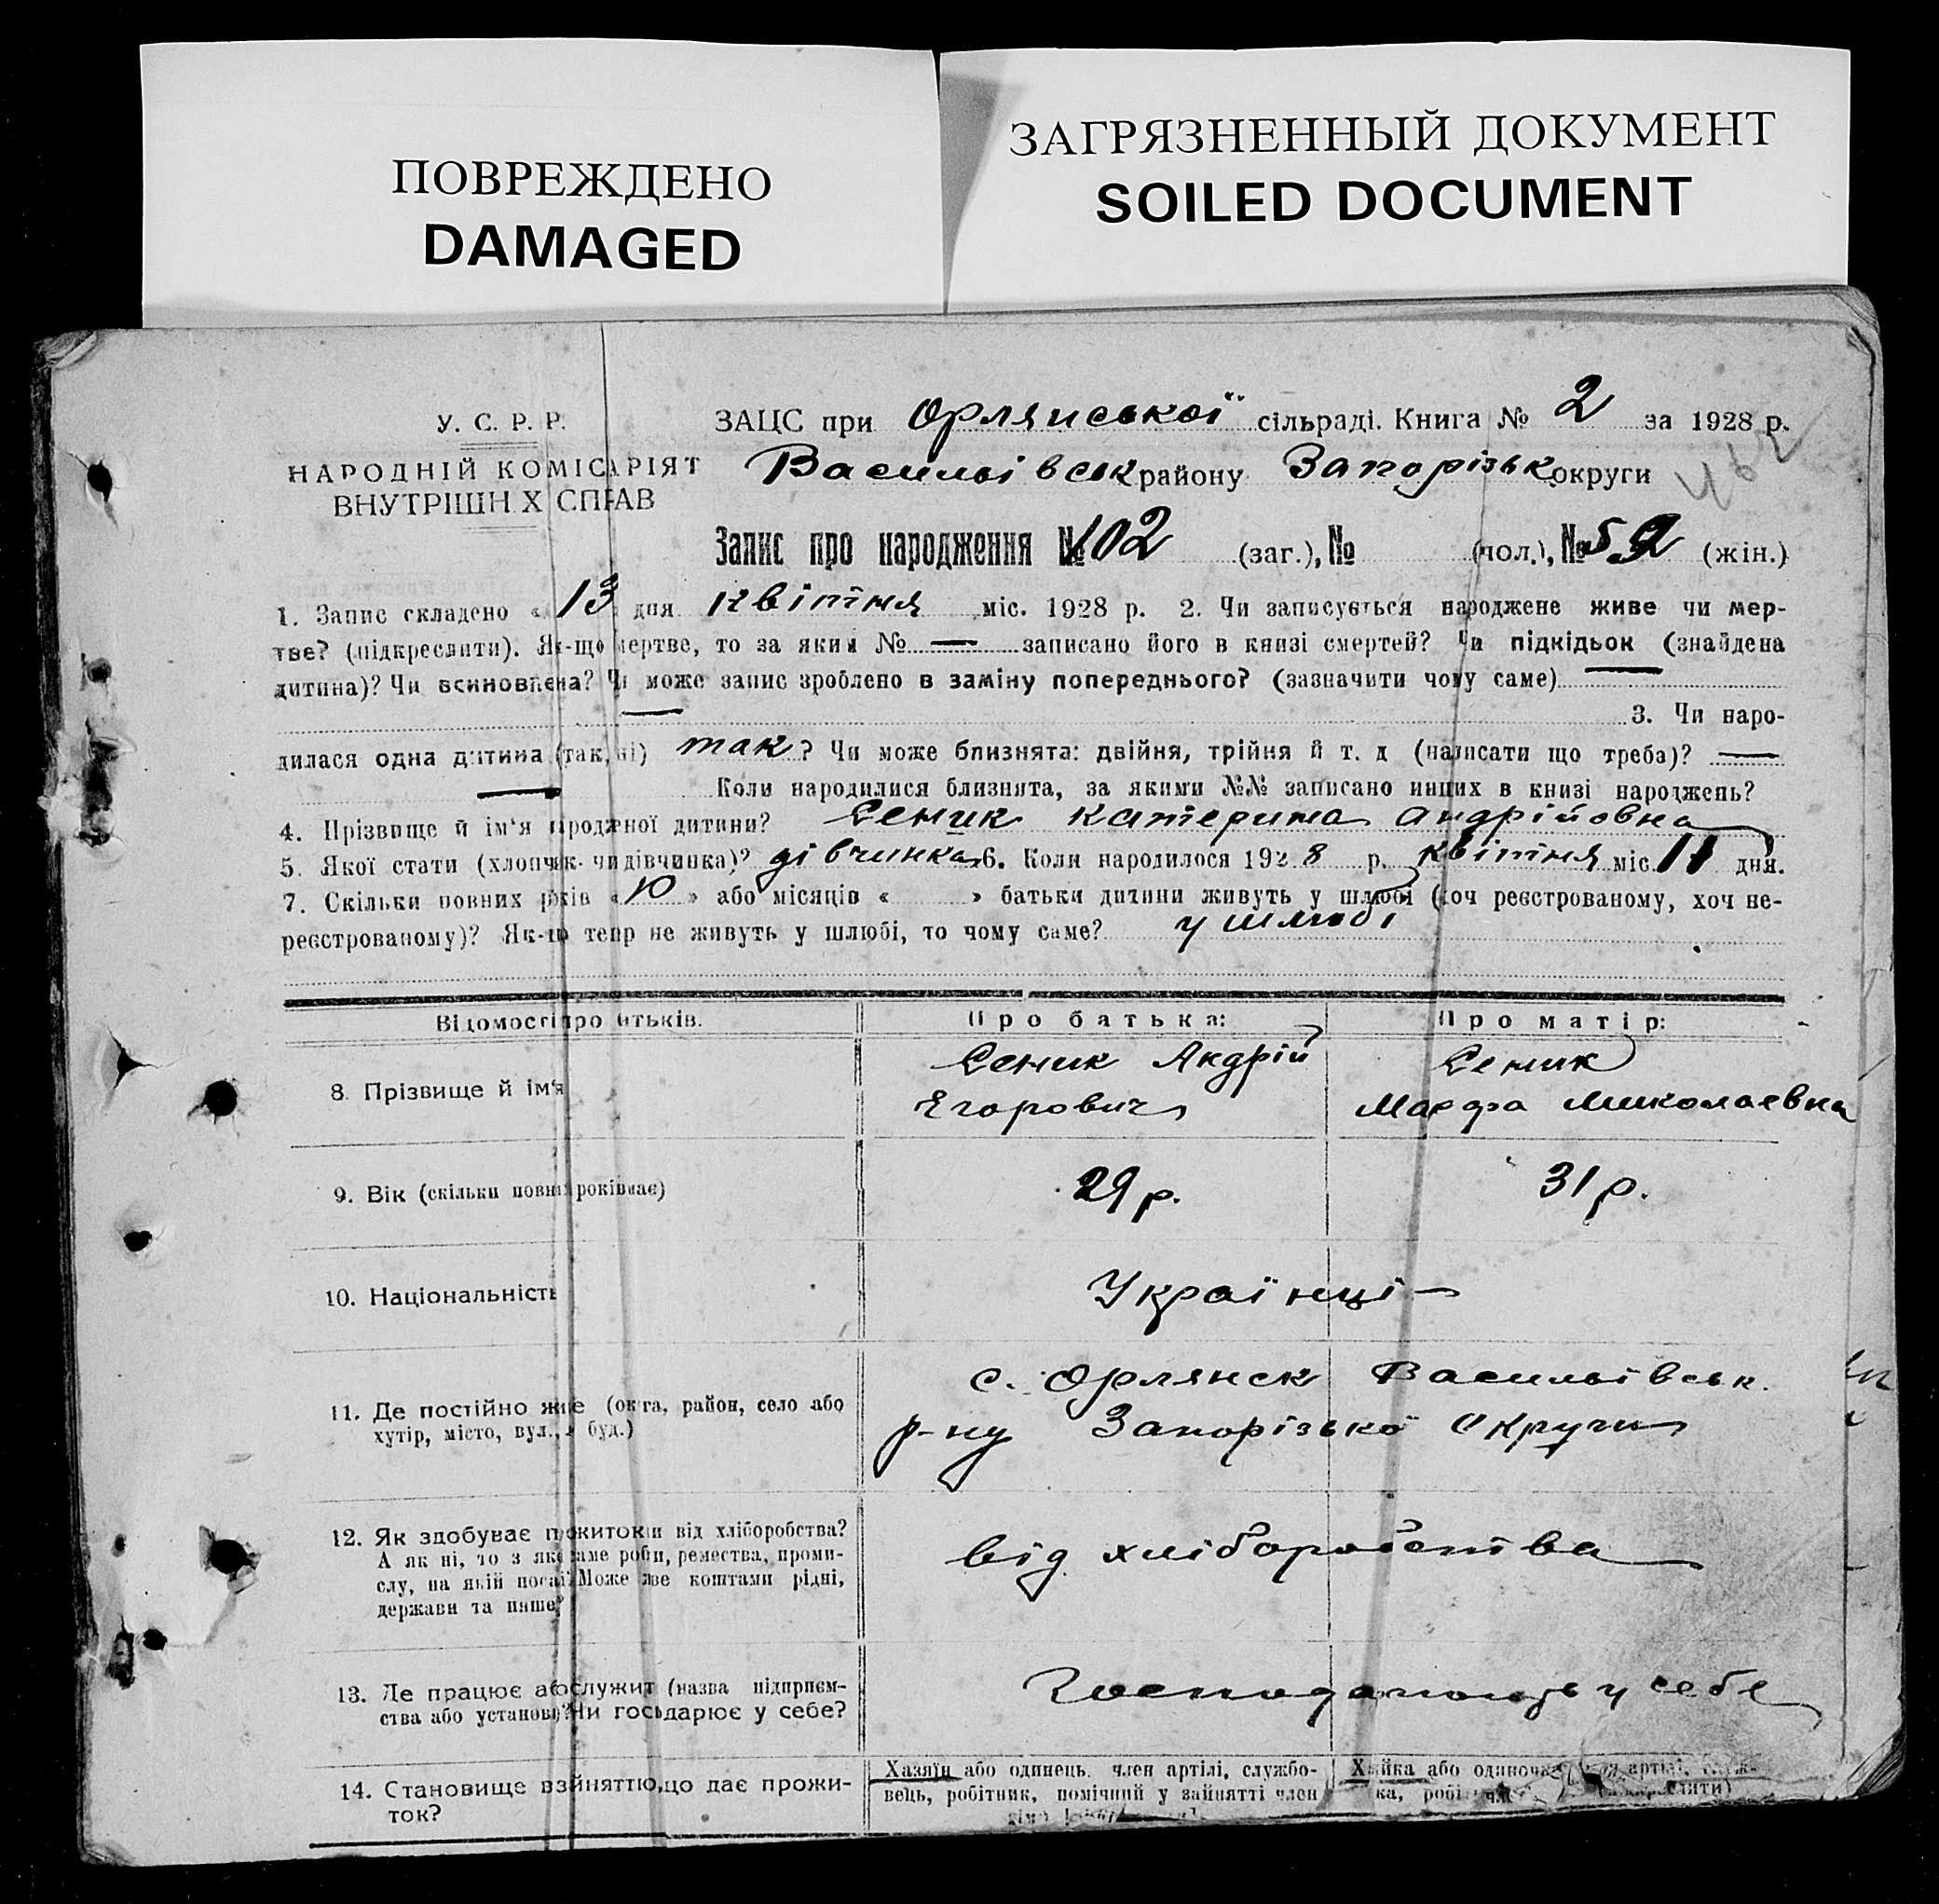 ПОВРЕЖДЕНО
DAMAGED
ЗАГРЯЗНЕННЫЙ ДОКУМЕНТ
SOILED DOCUMENT
У. С. Р. Р.
НАРОДНІЙ КОМІСАРІЯТ
ВНУТРІШН Х СПРАВ
ЗАЦС при Орлянської сільраді. Книга № 2 за 1928 р.
Васильівськ району Запорізьк округи
Запис про народження № 102 (заг.), № (чол.), № 59 (жін.)
1. Запис складено « 13 дня квітня міс. 1928 р. 2. Чи записується народжене живе чи мер-
тве? (підкреслити). Як-що мертве, то за яким № — записано його в книзі смертей? Чи підкідьок (знайдена
дитина)? Чи всиновлена? Чи може запис зроблено в заміну попереднього? (зазначити чому саме) —
— 3. Чи наро-
дилася одна дитина (так, ні) так? Чи може близнята: двійня, трійня й т. д (написати що треба)? —
— Коли народилися близнята, за якими №№ записано инших в книзі народжень?
4. Прізвище й ім'я народженої дитини? Сеник Катерина Андрійовна
5. Якої стати (хлопчик чи дівчинка)? дівчинка 6. Коли народилося 1928 р. квітня міс. 11 дня.
7. Скільки повних років « 10 » або місяців « » батьки дитини живуть у шлюбі (хоч реєстрованому, хоч не-
реєстрованому)? Як-що тепр не живуть у шлюбі, то чому саме? у шлюбі
Відомості про батьків. Про батька: Про матір:
8. Прізвище й ім'я
Сеник Андрій
Егорович
Сеник
Марфа Миколаевна
9. Вік (скільки повних років має) 29 р. 31 р.
10. Національність Українці —
11. Де постійно живе (округа, район, село або
хутір, місто, вул., буд.)
с. Орлянск Васильівськ.
р-ну Запорізької Округи
12. Як здобуває прожиток чи від хліборобства?
А як ні, то з якої саме роботи, ремества, проми-
слу, на якій посаді? Може живе коштами рідні,
держави та инше?
від хліборобства
13. Де працює або служить (назва підприєм-
ства або установи)? Чи господарює у себе?
Господарюють у себе
14. Становище в занятті, що дає прожи-
ток?
Хазяїн або одинець, член артілі, службо-
вець, робітник, помічний у зайнятті член
Хазяйка або одиночка, артілі,
ка,